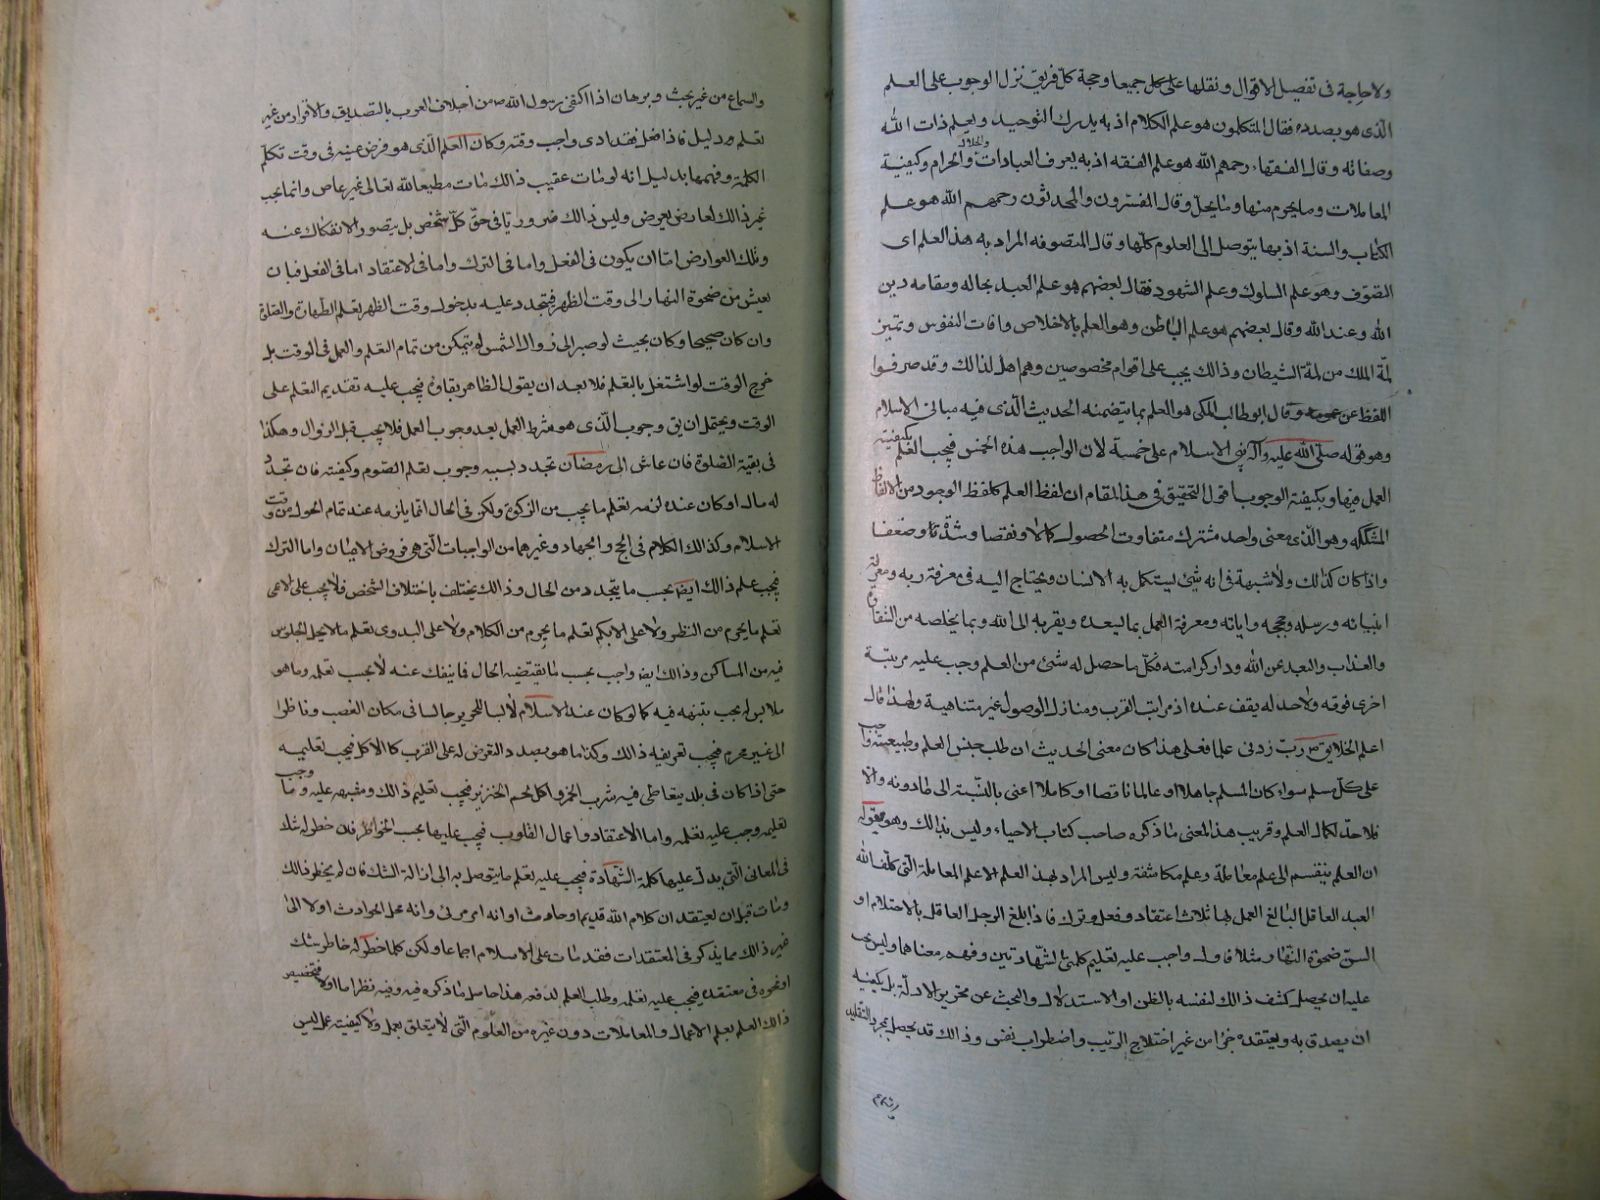 ولا حاجة فى تفصيل الاقوال ونقلها على كل جميعا وحجة كلّ فريق نزل الوجوب على العلم
الّذى هو بصدده فقال المتكلمون هو علم الكلام اذ به يدرك التوحيد ويعلم ذات الله
وصفاته وقال الفقهاء رحمهم الله هو علم الفقه اذ به يعرف العبادات والحلال والحرام وكيفية
المعاملات وما يحرم منها وما يحلّ وقال المفسّرون والمحدثون رحمهم الله هو علم
الكتاب والسنة اذ بها يتوصل الى العلوم كلّها وقال المتصوفه المراد به هذ العلم اى
التصوّف وهو علم السلوك وعلم الشهود فقال بعضهم هو علم العبد بحاله ومقامه دين
الله وعند الله وقال بعضهم هو علم الباطن وهو العلم بالاخلاص وافات النفوس وتميز
لمّة الملك من لمّة الشيطان وذالك يجب على اقوام مخصوصين وهم اهل لذالك وقد صرفوا
اللفظ عن عمومه وقال ابو طالب المكى هو العلم بما يتضمنه الحديث الّذى فيه مبانى الاسلام
وهو قوله صلّى الله عليه وآله بنى الاسلام على خمسة لان الواجب هذه الخمس فيجب العلم بكيفيّة
العمل فيها وبكيفية الوجوب اقول التحقيق فى هذ المقام ان لفظ العلم كلفظ الوجود من الالفاظ
المشككه وهو الّذى معنى واحد مشترك متفاوت الحصول كمالا ونقصا وشدّة وضعفا
واذا كان كذالك ولا شبهة فى انه شئ ليستكمل به الانسان ويحتاج اليه فى معرفة ربه ومعرفة
انبيائه ورسله وحججه واياته ومعرفة العمل بما يسعده ويقربه الى الله وبما يخلصه من الشقاوة
والعذاب والبعد عن الله ودار كرامته فكلّ ما حصل له شئ من العلم وجب عليه مرتبة
اخرى فوقه ولا حد له يقف عنده اذ مراتب القرب ومنازل الوصول غير متناهية ولهذا قال
اعلم الخلايق ربّ زدنى علما فعلى هذا كان معنى الحديث ان طلب جنس العلم وطبيعته واجب
على كلّ مسلم سواء كان المسلم جاهلا او عالما ناقصا او كاملا اعنى بالنّسبة الى ما دونه والا
فلا حدّ لكمال العلم وقريب هذ المعنى ما ذكره صاحب كتاب الاحياء وليس بذالك وهو قوله
ان العلم ينقسم الى علم معاملة وعلم مكاشفة وليس المراد بهذ العلم الا علم المعاملة الّتى كلّف الله
العبد العاقل البالغ العمل بها ثلاث اعتقاد وفعل وترك فاذا بلغ الرجل العاقل بالاحتلام او
السنّ ضحوة النهار مثلا فاول واجب عليه تعليم كلمتى الشّهادتين وفهم معناهما وليس يجب
عليه ان يحصل كشف ذالك لنفسه بالظن او الاستدلال والبحث عن تحرير الادلّة بل يكفيه
ان يصدق به ويعتقده جزما من غير اختلاج الريب واضطراب نفس وذالك قد يحصل بمجرد التقليد
والسماع من غير بحث وبرهان اذا اكتفى رسول الله ص من اجلاف العرب بالتصديق والاقرار من غير
تعلم ودليل فاذا فعل فقد ادى واجب وقته وكان العلم الّذى هو فرض عينه فى وقت تكلم
الكلمة وفهمها بدليل انه لو مات عقيب ذالك مات مطيعا لله تعالى غير عاص وانما يجب
غير ذالك لعارض يعرض وليس ذالك ضروريا فى حقّ كلّ شخص بل يتصور الانفكاك عنه
وتلك العوارض امّا ان يكون فى الفعل واما فى الترك واما فى الاعتقاد اما فى الفعل فبان
يعيش من ضحوة النهار الى وقت الظهر فيتجدد عليه بدخول وقت الظهر تعلم الطهارة والصّلاة
وان كان صحيحا وكان بحيث لو صبر الى زوال الشمس لم يتمكن من تمام التعلم والعمل فى الوقت بل
خرج الوقت لو اشتغل بالتعلم فلا بعد ان يقول الظاهر بقاؤه فيجب عليه تقديم التعلم على
الوقت ويحتمل ان يق وجوب الّذى هو شرط العمل بعد وجوب العمل فلا يجب قبل الزوال وهكذا
فى بقية الصّلوة فان عاش الى رمضان تجدد بسببه وجوب تعلم الصّوم وكيفيته فان تجدّد
له مال او كان عنده لزمه تعلم ما يجب من الزكوة ولكن فى الحال انما يلزمه عند تمام الحول من وقت
الاسلام وكذالك الكلام فى الحج والجهاد وغيرهما من الواجبات الّتى هى فروض الاعيان واما الترك
فيجب علم ذالك ايضا بحسب ما يتجدد من الحال وذالك يختلف باختلاف الشخص فلا يجب على الاعمى
تعلم ما يحرم من النظر ولا على الابكم تعلم ما يحرم من الكلام ولا على البدوى تعلم ما لا يحل الجلوس
فيه من المساكن وذالك ايضا واجب بحسب ما يقتضيه الحال فما ينفك عنه لا يجب تعلمه وما هو
ملابس له يجب تنبيهه فيه كما لو كان عند الاسلام لابسا للحرير جالسا فى مكان الغصب وناظرا
الى غير محرم فيجب تعريفه ذالك وكذا ما هو بصدد التعرض له على القرب كالاكل فيجب تعليمه
حتى اذا كان فى بلد يتعاطى فيه شرب الخمر واكل لحم الخنزير فيجب تعليم ذالك وتنبيهه عليه وما وجب
تعليمه وجب عليه تعلمه واما الاعتقاد واعمال القلوب فيجب عليها بحسب الخواطر فان خطر له شك
فى المعانى الّتى يدل عليها كلمة الشّهادة فيجب عليه تعلم ما يتوصل به الى ازالة الشك فان لم يخطر ذالك
ومات قبل ان يعتقد ان كلام الله قديم او حادث او انه مرئى وانه محل الحوادث او لا الى
غير ذالك مما يذكر فى المعتقدات فقد مات على الاسلام اجماعا ولكن كلما خطر له خاطر شك
او نحوه فى معتقده فيجب عليه تعلمه وطلب العلم لدفعه هذا حاصل ما ذكره فيه وفيه نظر اما اولا فتخصيص
ذالك العلم بعلم الاعمال والمعاملات دون غيره من العلوم الّتى لا يتعلق بعمل ولا كيفيته عمل ليس